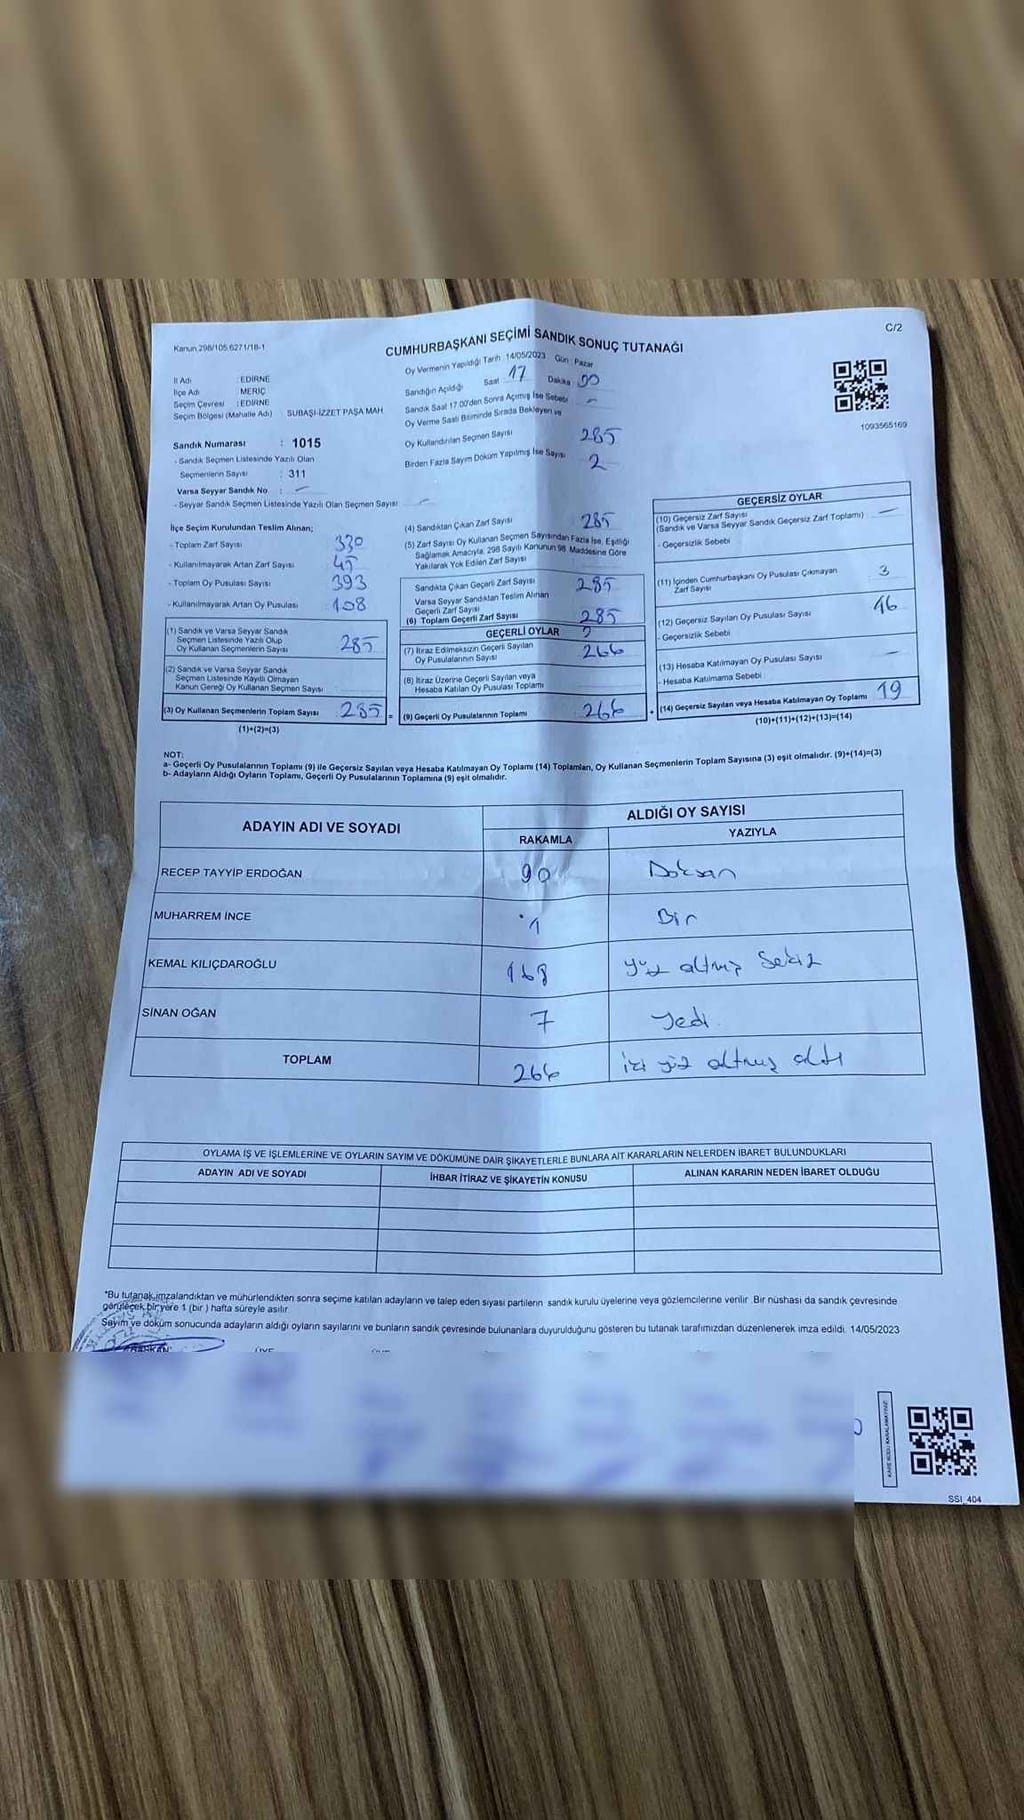 C/2
Kanun 298/105.6271/18-1
CUMHURBAŞKANI SEÇİMİ SANDIK SONUÇ TUTANAĞI
Oy Vermenin Yapıldığı Tarih : 14/05/2023 Gün : Pazar
İl Adı : EDİRNE
İlçe Adı : MERİÇ
Seçim Çevresi : EDİRNE
Seçim Bölgesi (Mahalle Adı) : SUBAŞI-İZZET PAŞA MAH
Sandık Numarası : 1015
- Sandık Seçmen Listesinde Yazılı Olan
Seçmenlerin Sayısı : 311
Varsa Seyyar Sandık No : -
- Seyyar Sandık Seçmen Listesinde Yazılı Olan Seçmen Sayısı : -
Sandığın Açıldığı Saat 17 Dakika 00
Sandık Saat 17:00'den Sonra Açımış İse Sebebi -
Oy Verme Saati Bitiminde Sırada Bekleyen ve
Oy Kullandırılan Seçmen Sayısı 285
Birden Fazla Sayım Döküm Yapılmış İse Sayısı 2
1093565169
İlçe Seçim Kurulundan Teslim Alınan;
- Toplam Zarf Sayısı : 330
- Kullanılmayarak Artan Zarf Sayısı : 45
- Toplam Oy Pusulası Sayısı : 393
- Kullanılmayarak Artan Oy Pusulası : 108
(1) Sandık ve Varsa Seyyar Sandık
Seçmen Listesinde Yazılı Olup
Oy Kullanan Seçmenlerin Sayısı 285
(2) Sandık ve Varsa Seyyar Sandık
Seçmen Listesinde Kayıtlı Olmayan
Kanun Gereği Oy Kullanan Seçmen Sayısı
(3) Oy Kullanan Seçmenlerin Toplam Sayısı 285 =
(1)+(2)=(3)
(4) Sandıktan Çıkan Zarf Sayısı 285
(5) Zarf Sayısı Oy Kullanan Seçmen Sayısından Fazla İse, Eşitliği
Sağlamak Amacıyla, 298 Sayılı Kanunun 98. Maddesine Göre
Yakılarak Yok Edilen Zarf Sayısı
Sandıkta Çıkan Geçerli Zarf Sayısı 285
Varsa Seyyar Sandıktan Teslim Alınan
Geçerli Zarf Sayısı
(6) Toplam Geçerli Zarf Sayısı 285
GEÇERLİ OYLAR
(7) İtiraz Edilmeksizin Geçerli Sayılan
Oy Pusulalarının Sayısı 266
(8) İtiraz Üzerine Geçerli Sayılan veya
Hesaba Katılan Oy Pusulası Toplamı
(9) Geçerli Oy Pusulalarının Toplamı 266
GEÇERSİZ OYLAR
(10) Geçersiz Zarf Sayısı
(Sandık ve Varsa Seyyar Sandık Geçersiz Zarf Toplamı) -
- Geçersizlik Sebebi
(11) İçinden Cumhurbaşkanı Oy Pusulası Çıkmayan
Zarf Sayısı 3
(12) Geçersiz Sayılan Oy Pusulası Sayısı 16
- Geçersizlik Sebebi
(13) Hesaba Katılmayan Oy Pusulası Sayısı -
- Hesaba Katılmama Sebebi :
+ (14) Geçersiz Sayılan veya Hesaba Katılmayan Oy Toplamı 19
(10)+(11)+(12)+(13)=(14)
NOT:
a- Geçerli Oy Pusulalarının Toplamı (9) ile Geçersiz Sayılan veya Hesaba Katılmayan Oy Toplamı (14) Toplamları, Oy Kullanan Seçmenlerin Toplam Sayısına (3) eşit olmalıdır. (9)+(14)=(3)
b- Adayların Aldığı Oyların Toplamı, Geçerli Oy Pusulalarının Toplamına (9) eşit olmalıdır.
ADAYIN ADI VE SOYADI ALDIĞI OY SAYISI
RAKAMLA YAZIYLA
RECEP TAYYİP ERDOĞAN 90 Doksan
MUHARREM İNCE 1 Bir
KEMAL KILIÇDAROĞLU 168 yüz altmış sekiz
SİNAN OĞAN 7 yedi
TOPLAM 266 iki yüz altmış altı
OYLAMA İŞ VE İŞLEMLERİNE VE OYLARIN SAYIM VE DÖKÜMÜNE DAİR ŞİKAYETLERLE BUNLARA AİT KARARLARIN NELERDEN İBARET BULUNDUKLARI
ADAYIN ADI VE SOYADI İHBAR İTİRAZ VE ŞİKAYETİN KONUSU ALINAN KARARIN NEDEN İBARET OLDUĞU
*Bu tutanak,imzalandıktan ve mühürlendikten sonra seçime katılan adayların ve talep eden siyasi partilerin sandık kurulu üyelerine veya gözlemcilerine verilir. Bir nüshası da sandık çevresinde
görülecek bir yere 1 (bir ) hafta süreyle asılır.
Sayım ve döküm sonucunda adayların aldığı oyların sayılarını ve bunların sandık çevresinde bulunanlara duyurulduğunu gösteren bu tutanak tarafımızdan düzenlenerek imza edildi. 14/05/2023
BAŞKAN ÜYE
KARE KODU KARALAMAYINIZ!
SSI_404